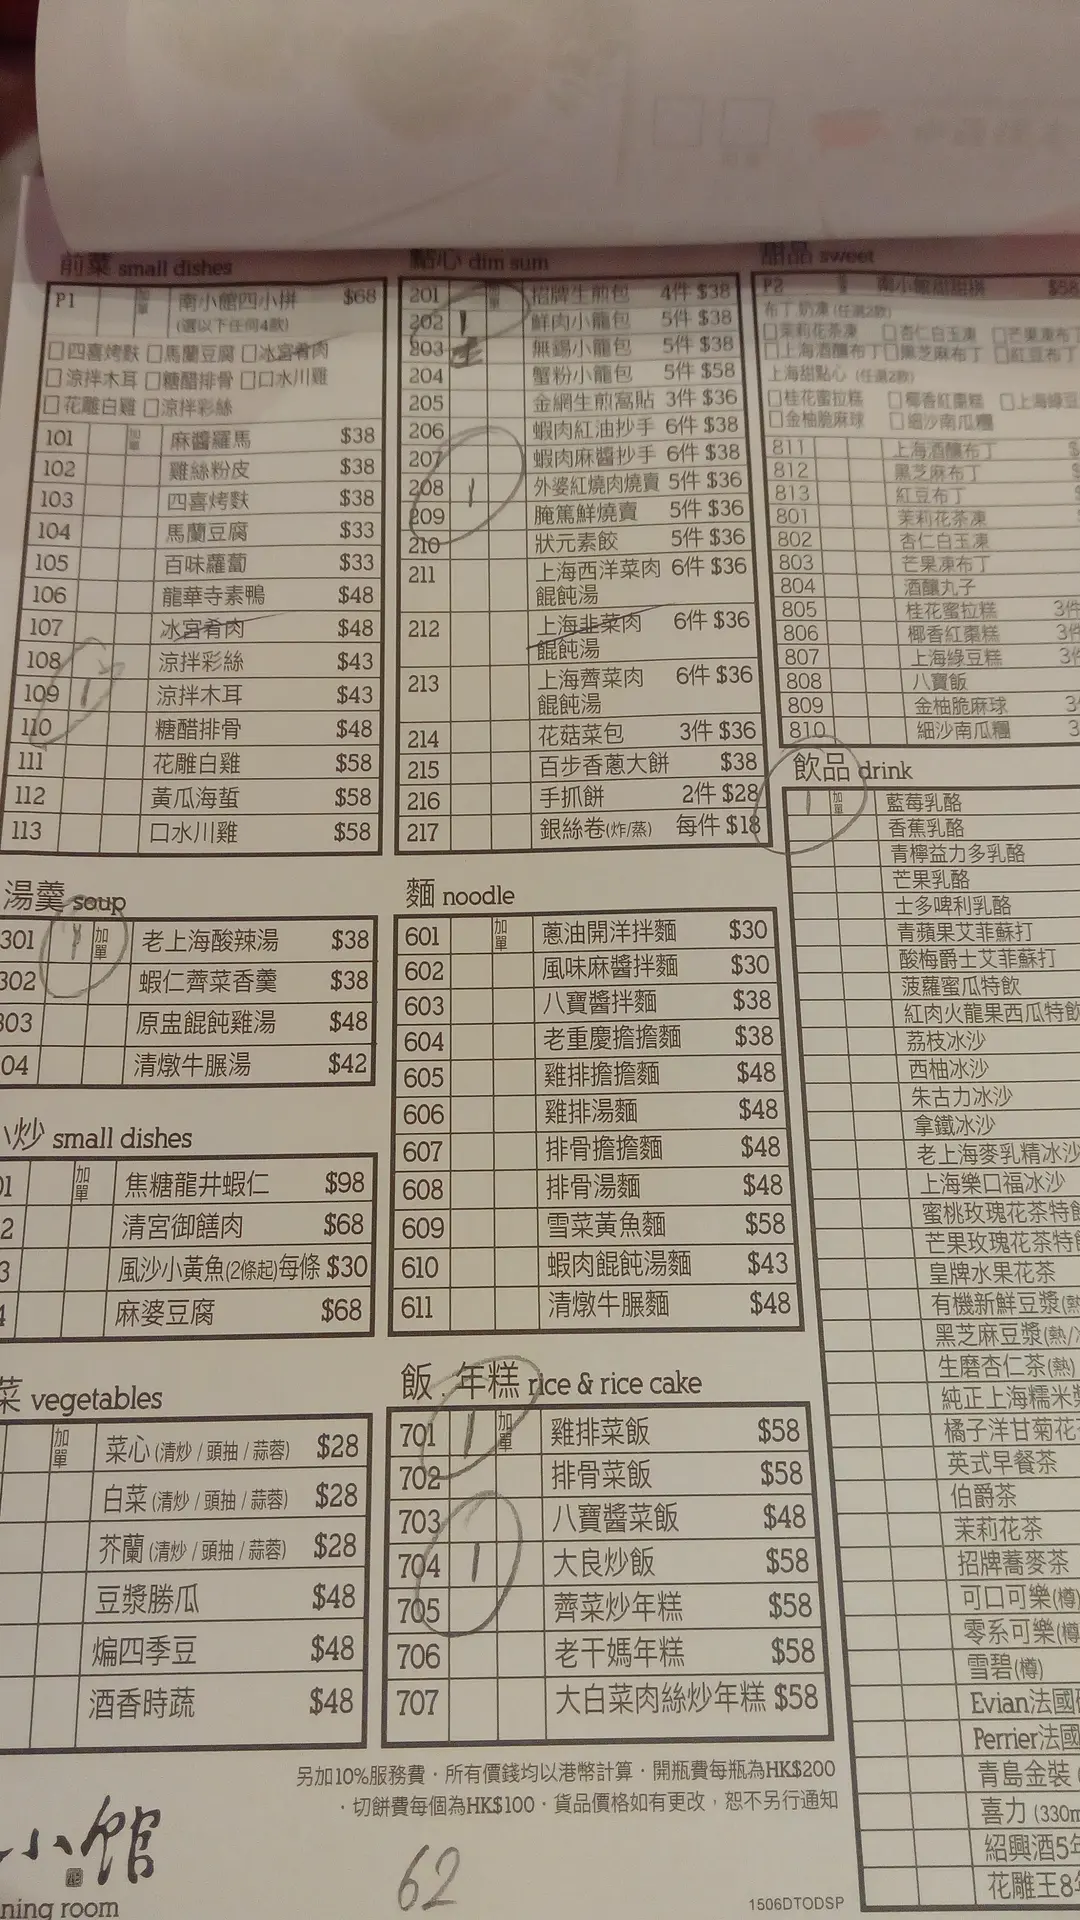 前菜 small dishes
P1 加單 南小館四小拼 $68
(選以下任何4款)
四喜烤麩 馬蘭豆腐 冰宮肴肉
涼拌木耳 糖醋排骨 口水川雞
花雕白雞 涼拌彩絲
101 加單 麻醬羅馬 $38
102 雞絲粉皮 $38
103 四喜烤麩 $38
104 馬蘭豆腐 $33
105 百味蘿蔔 $33
106 龍華寺素鴨 $48
107 冰宮肴肉 $48
108 涼拌彩絲 $43
109 1 涼拌木耳 $43
110 糖醋排骨 $48
111 花雕白雞 $58
112 黃瓜海蜇 $58
113 口水川雞 $58
湯羹 soup
301 1 加單 老上海酸辣湯 $38
302 蝦仁薺菜香羹 $38
303 原盅餛飩雞湯 $48
04 清燉牛腒湯 $42
小炒 small dishes
01 加單 焦糖龍井蝦仁 $98
2 清宮御饍肉 $68
3 風沙小黃魚(2條起)每條 $30
4 麻婆豆腐 $68
菜 vegetables
加單 菜心 (清炒 / 頭抽 / 蒜蓉) $28
白菜 (清炒 / 頭抽 / 蒜蓉) $28
芥蘭 (清炒 / 頭抽 / 蒜蓉) $28
豆漿勝瓜 $48
煸四季豆 $48
酒香時蔬 $48
點心 dim sum
201 加單 招牌生煎包 4件 $38
202 1 鮮肉小籠包 5件 $38
203 無錫小籠包 5件 $38
204 蟹粉小籠包 5件 $58
205 金網生煎窩貼 3件 $36
206 蝦肉紅油抄手 6件 $38
207 蝦肉麻醬抄手 6件 $38
208 1 外婆紅燒肉燒賣 5件 $36
209 腌篤鮮燒賣 5件 $36
210 狀元素餃 5件 $36
211 上海西洋菜肉 6件 $36
餛飩湯
212 上海韭菜肉 6件 $36
餛飩湯
213 上海薺菜肉 6件 $36
餛飩湯
214 花菇菜包 3件 $36
215 百步香蔥大餅 $38
216 手抓餅 2件 $28
217 銀絲卷(炸/蒸) 每件 $18
麵 noodle
601 加單 蔥油開洋拌麵 $30
602 風味麻醬拌麵 $30
603 八寶醬拌麵 $38
604 老重慶擔擔麵 $38
605 雞排擔擔麵 $48
606 雞排湯麵 $48
607 排骨擔擔麵 $48
608 排骨湯麵 $48
609 雪菜黃魚麵 $58
610 蝦肉餛飩湯麵 $43
611 清燉牛腒麵 $48
飯 . 年糕 rice & rice cake
701 1 加單 雞排菜飯 $58
702 排骨菜飯 $58
703 八寶醬菜飯 $48
704 1 大良炒飯 $58
705 薺菜炒年糕 $58
706 老干媽年糕 $58
707 大白菜肉絲炒年糕 $58
甜品 sweet
P2 南小館甜甜拼 $58
布丁.奶凍 (任選2款)
茉莉花茶凍 杏仁白玉凍 芒果凍布丁
上海酒釀布丁 黑芝麻布丁 紅豆布丁
上海甜點心 (任選2款)
桂花蜜拉糕 椰香紅棗糕 上海綠豆
金柚脆麻球 細沙南瓜糰
811 上海酒釀布丁 $
812 黑芝麻布丁 $
813 紅豆布丁 $
801 茉莉花茶凍
802 杏仁白玉凍
803 芒果凍布丁
804 酒釀丸子
805 桂花蜜拉糕 3件
806 椰香紅棗糕 3件
807 上海綠豆糕 3件
808 八寶飯
809 金柚脆麻球 3
810 細沙南瓜糰 3
飲品 drink
1 加單 藍莓乳酪
香蕉乳酪
青檸益力多乳酪
芒果乳酪
士多啤利乳酪
青蘋果艾菲蘇打
酸梅爵士艾菲蘇打
菠蘿蜜瓜特飲
紅肉火龍果西瓜特飲
荔枝冰沙
西柚冰沙
朱古力冰沙
拿鐵冰沙
老上海麥乳精冰沙
上海樂口福冰沙
蜜桃玫瑰花茶特飲
芒果玫瑰花茶特飲
皇牌水果花茶
有機新鮮豆漿(熱
黑芝麻豆漿(熱/
生磨杏仁茶(熱)
純正上海糯米
橘子洋甘菊花
英式早餐茶
伯爵茶
茉莉花茶
招牌蕎麥茶
可口可樂(樽)
零系可樂(樽
雪碧(樽)
Evian法國
Perrier法國
青島金裝
喜力 (330m
紹興酒5年
花雕王8年
另加10%服務費・所有價錢均以港幣計算・開瓶費每瓶為HK$200
・切餅費每個為HK$100・貨品價格如有更改，恕不另行通知
小館
ning room
62
1506DTODSP